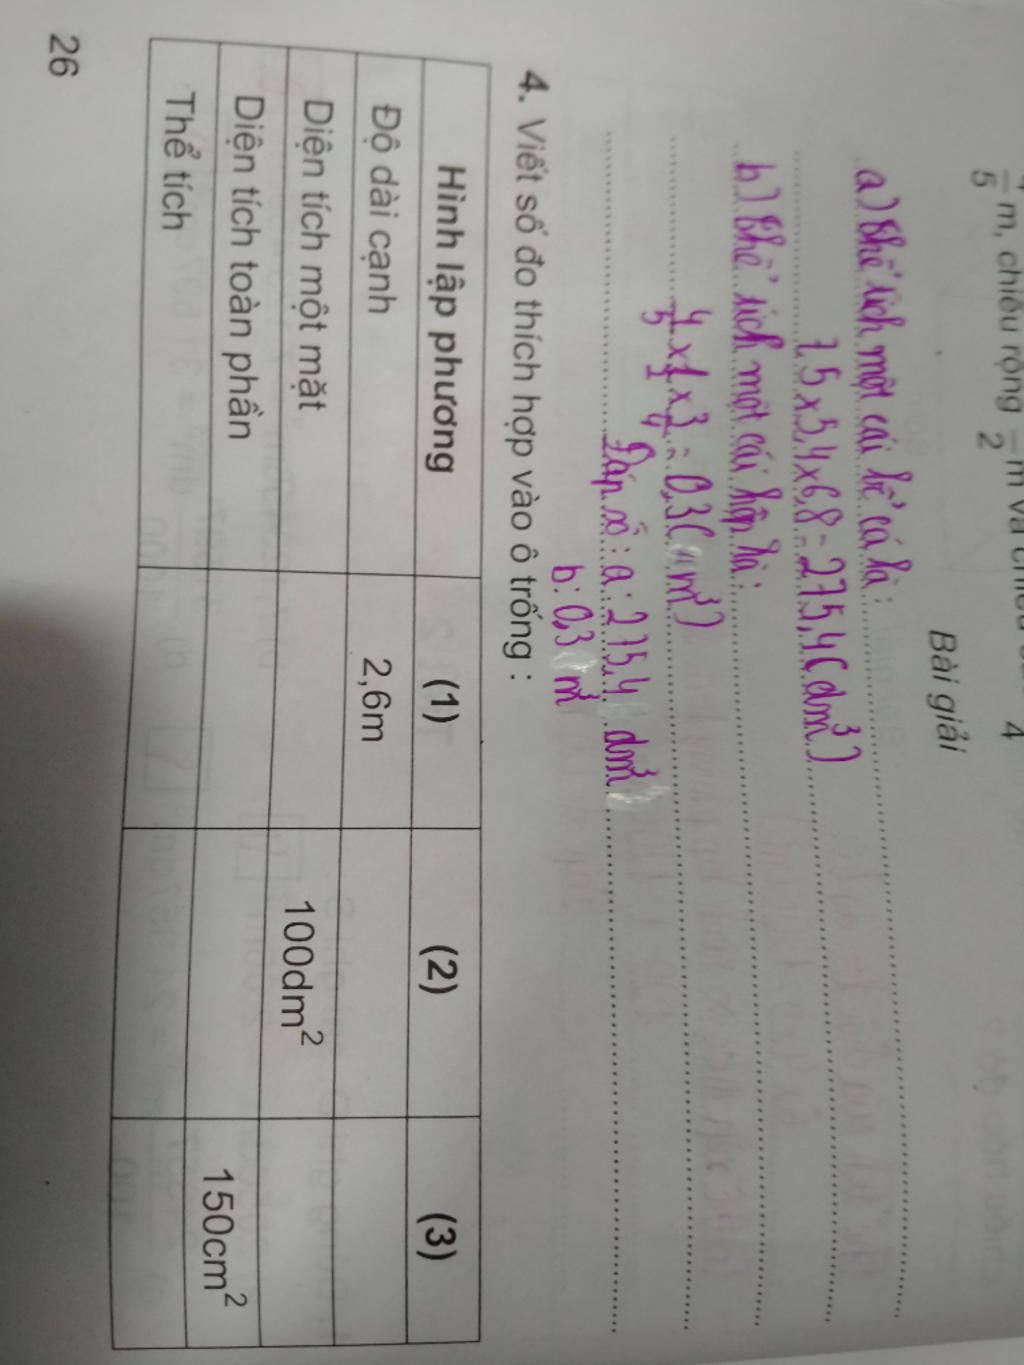 5 m, chiều rộng 2 m và chiều
4
Bài giải
a) Thể tích một cái bể cá là:
7,5 x 5,4 x 6,8 = 275,4 (dm³)
b) Thể tích một cái hộp là:
4/5 x 1/2 x 3/4 = 0,3 (m³)
Đáp số: a: 275,4 dm³
b: 0,3 m³
4. Viết số đo thích hợp vào ô trống :
Hình lập phương (1) (2) (3)
Độ dài cạnh 2,6m
Diện tích một mặt 100dm²
Diện tích toàn phần 150cm²
Thể tích
26